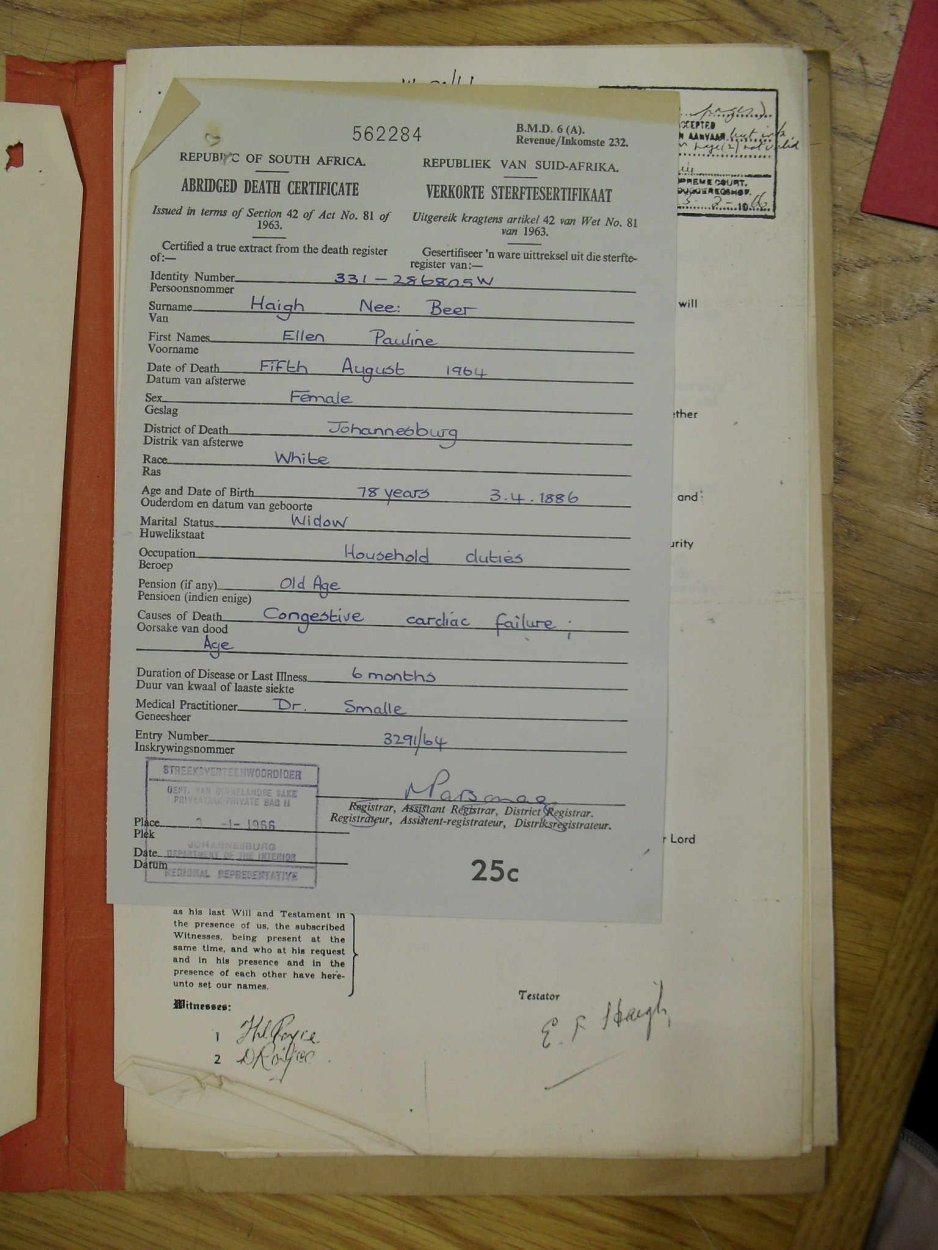 562284
B.M.D. 6 (A).
Revenue/Inkomste 232.
REPUBLIC OF SOUTH AFRICA.
REPUBLIEK VAN SUID-AFRIKA.
ABRIDGED DEATH CERTIFICATE
VERKORTE STERFTESERTIFIKAAT
Issued in terms of Section 42 of Act No. 81 of
1963.
Uitgereik kragtens artikel 42 van Wet No. 81
van 1963.
Certified a true extract from the death register
of:—
Gesertifiseer 'n ware uittreksel uit die sterfte-
register van:—
Identity Number 331-286805W
Persoonsnommer
Surname Haigh Nee: Beer
Van
First Names Ellen Pauline
Voorname
Date of Death Fifth August 1964
Datum van afsterwe
Sex Female
Geslag
District of Death Johannesburg
Distrik van afsterwe
Race White
Ras
Age and Date of Birth 78 years 3.4.1886
Ouderdom en datum van geboorte
Marital Status Widow
Huwelikstaat
Occupation Household duties
Beroep
Pension (if any) Old Age
Pensioen (indien enige)
Causes of Death Congestive cardiac failure;
Oorsake van dood
Age
Duration of Disease or Last Illness 6 months
Duur van kwaal of laaste siekte
Medical Practitioner Dr. Smalle
Geneesheer
Entry Number 3291/64
Inskrywingsnommer
STREEKSVERTEENWOORDIGER
DEPT. VAN BINNELANDSE SAKE
PRIVATE BAG 11
Registrar, Assistant Registrar, District Registrar.
Registrateur, Assistent-registrateur, Distriksregistrateur.
Place -1-1966
Plek
JOHANNESBURG
Date DEPARTMENT OF THE INTERIOR
Datum
REGIONAL REPRESENTATIVE
25c
pages)
ACCEPTED
AANVAAR
SUPREME COURT.
will
and
Lord
as his last Will and Testament in
the presence of us, the subscribed
Witnesses, being present at the
same time, and who at his request
and in his presence and in the
presence of each other have here-
unto set our names.
Witnesses:
Testator
E. F. Haigh
1
2